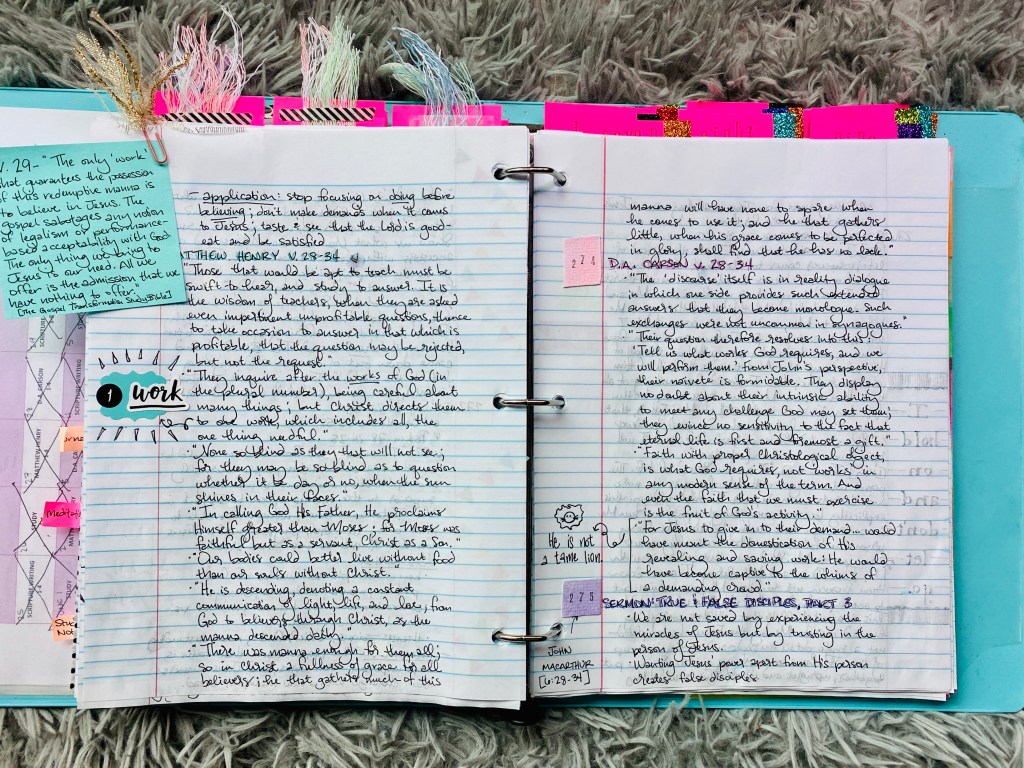 V. 29- "The only 'work'
that guarantees the possession
of this redemptive manna is
to believe in Jesus. The
gospel sabotages any notion
of legalism or performance-
based acceptability with God
The only thing we bring to
Jesus is our need. All we
offer is the admission that we
have nothing to offer."
[The Gospel Transformation Study Bible]
1 work
- application: stop focusing on doing before
believing; don't make demands when it comes
to Jesus; taste & see that the Lord is good-
eat and be satisfied
THEW HENRY V. 28-34
"Those that would be apt to teach must be
swift to hear, and study to answer. It is
the wisdom of teachers, when they are asked
even impertinent unprofitable questions, thence
to take occasion to answer in that which is
profitable, that the question may be rejected,
but not the request."
"They inquire after the works of God (in
the plural number), being careful about
many things; but Christ directs them
to one work, which includes all, the
one thing needful."
"None so blind as they that will not see;
for they may be so blind as to question
whether it be day or no, when the sun
shines in their faces."
"In calling God His Father, He proclaims
Himself greater than Moses; for Moses was
faithful but as a servant, Christ as a Son."
"Our bodies could better live without food
than our souls without Christ."
"He is descending, denoting a constant
communication of light, life, and love, from
God to believers through Christ, as the
manna descended daily."
"There was manna enough for them all;
so in Christ a fullness of grace for all
believers; he that gathers much of this
manna will have none to spare when
he comes to use it; and he that gathers
little, when his grace comes to be perfected
in glory, shall find that he has no lack."
274
D.A. CARSON V. 28-34
"The 'discourse' itself is in reality dialogue
in which one side provides such extended
answers that they become monologue. Such
exchanges were not uncommon in synagogues."
"Their question therefore resolves into this:
'Tell us what works God requires, and we
will perform them.' from John's perspective,
their naivete is formidable. They display
no doubt about their intrinsic ability
to meet any challenge God may set them;
they evince no sensitivity to the fact that
eternal life is first and foremost a gift."
"Faith with proper Christological object,
is what God requires, not 'works' in
any modern sense of the term. And
even the faith that we must exercise
is the fruit of God's activity."
"For Jesus to give in to their demand... would
have meant the domestication of His
revealing and saving work: He would
have become captive to the whims of
a demanding crowd."
He is not
a tame lion.
275
SERMON: TRUE & FALSE DISCIPLES, PART 3
JOHN
MACARTHUR
[6:28-34]
· We are not saved by experiencing the
miracles of Jesus but by trusting in the
person of Jesus.
· Wanting Jesus' power apart from His person
creates false disciples.
SCRIPTURE WRITING
D.A. CARSON
MATTHEW HENRY
STUDY
SCRIPTURE WRITING